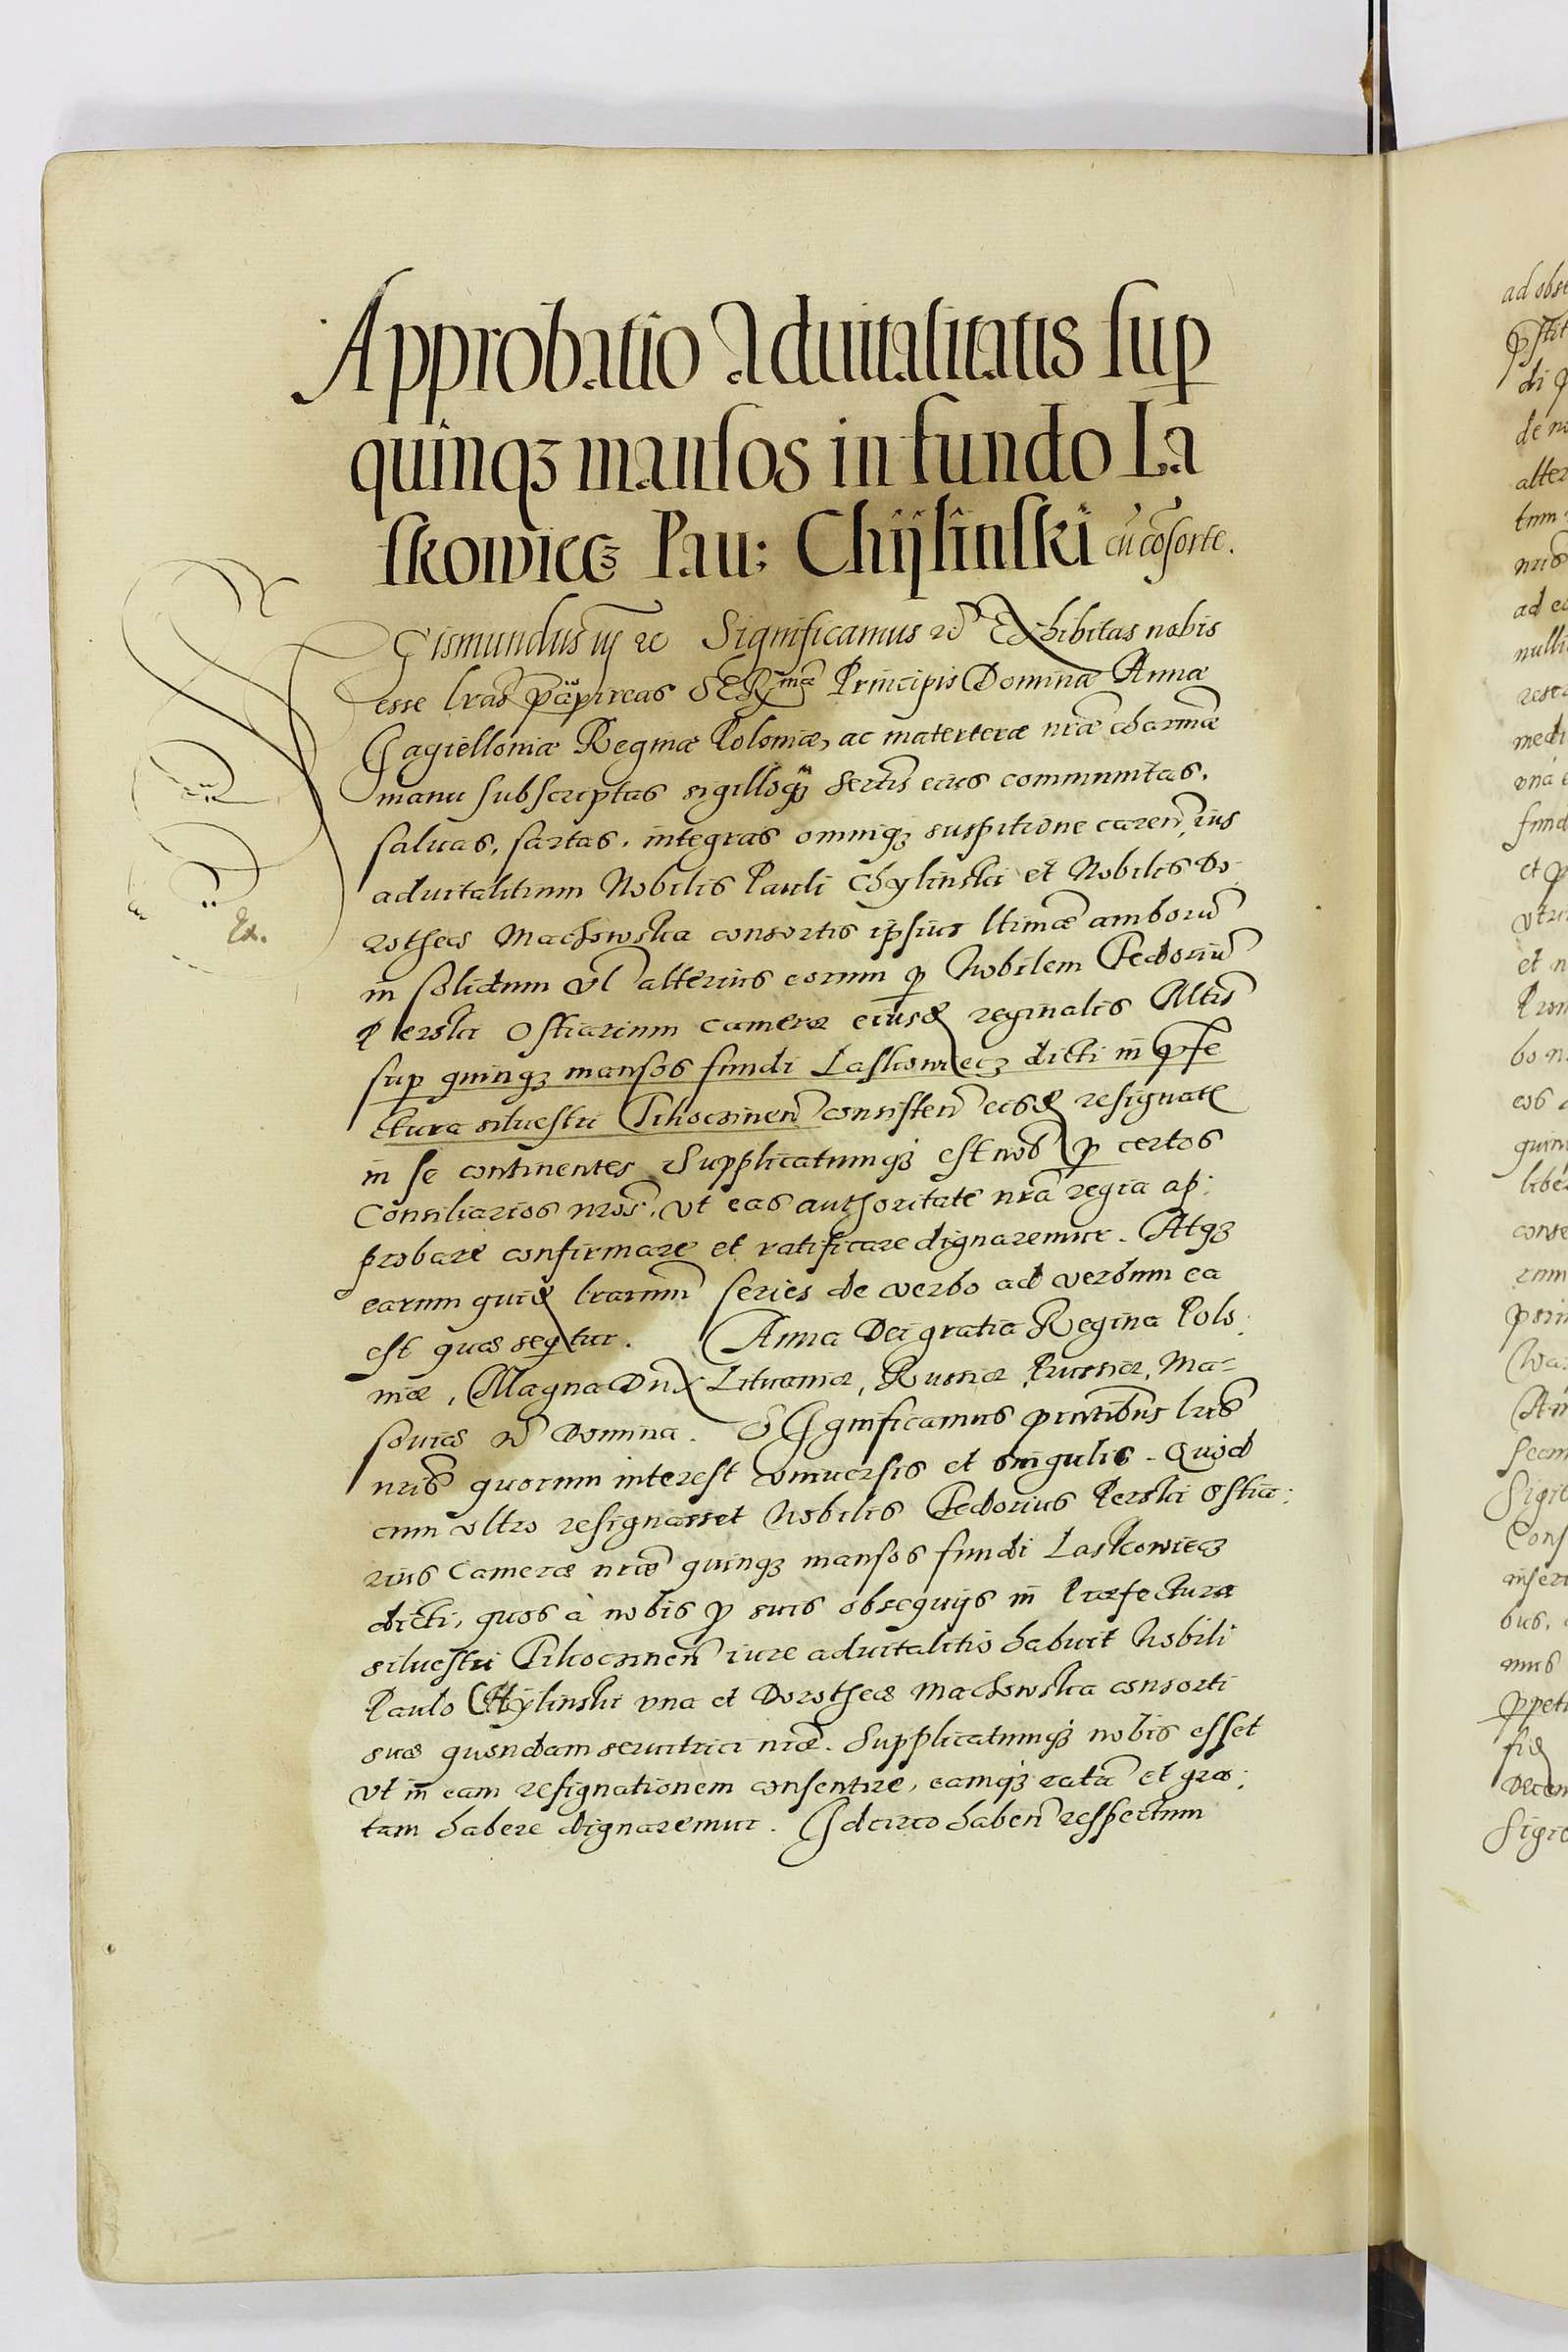 Approbatio Aduitalitatis sup
quinqȝ mansos in fundo La
skowiecȝ Pau: Chijlinski cũ cõsorte.
Sigismundus iij ꝛc Significamus ꝛc Exhibitas nobis
esse lras papireas SERmæ Principis Dominæ Annæ
Jagielloniæ Reginæ Poloniæ, ac materteræ nræ charmæ
manu subscriptas sigilloqȝ sertis eius communitas,
saluas, sartas, integras omniqȝ suspitione caren ius
aduitalitium Nobilis Pauli Chylinski et Nobilis Do
rotheæ Machowska consortis ipsius ltimæ amborũ
in solidum vl alterius eorum p Nobilem Fedoriũ
Perski Ostiarium cameræ eiusd reginalis Mltis
sup quinqȝ mansos fundi Laskowiecȝ dicti in præfe
ctura siluestri Tikocinen consisten eisd resignate
in se continentes Supplicatumqȝ est nob p certos
Consiliarios nros, vt eas authoritate nra regia ap:
probare confirmare et ratificare dignaremur. Atqȝ
earum quid lrarum series de verbo ad verbum ea
est quæ seqtur. Anna Dei gratia Regina Polo:
niæ, Magna Dux Lituaniæ, Russiæ, Prussiæ, Ma=
souiæ ꝛc Domina. Significamus pntibus lris
nris quorum interest vniuersis et singulis. Quod
cum vltro resignasset Nobilis Fedorius Perski ostia:
rius Cameræ nræ quinqȝ mansos fundi Laskowiecȝ
dicti, quos à nobis p suis obsequijs in Præfectura
siluestri Tikocinen iure aduitalitio habuit Nobili
Paulo Chylinski vna et Dorotheæ Machowska consorti
suæ quondam seruitrici nræ. Supplicatumqȝ nobis esset
vt in eam resignationem consentire, eamqȝ ratã et gra:
tam habere dignaremur. Idcirco haben respectum
Ex.